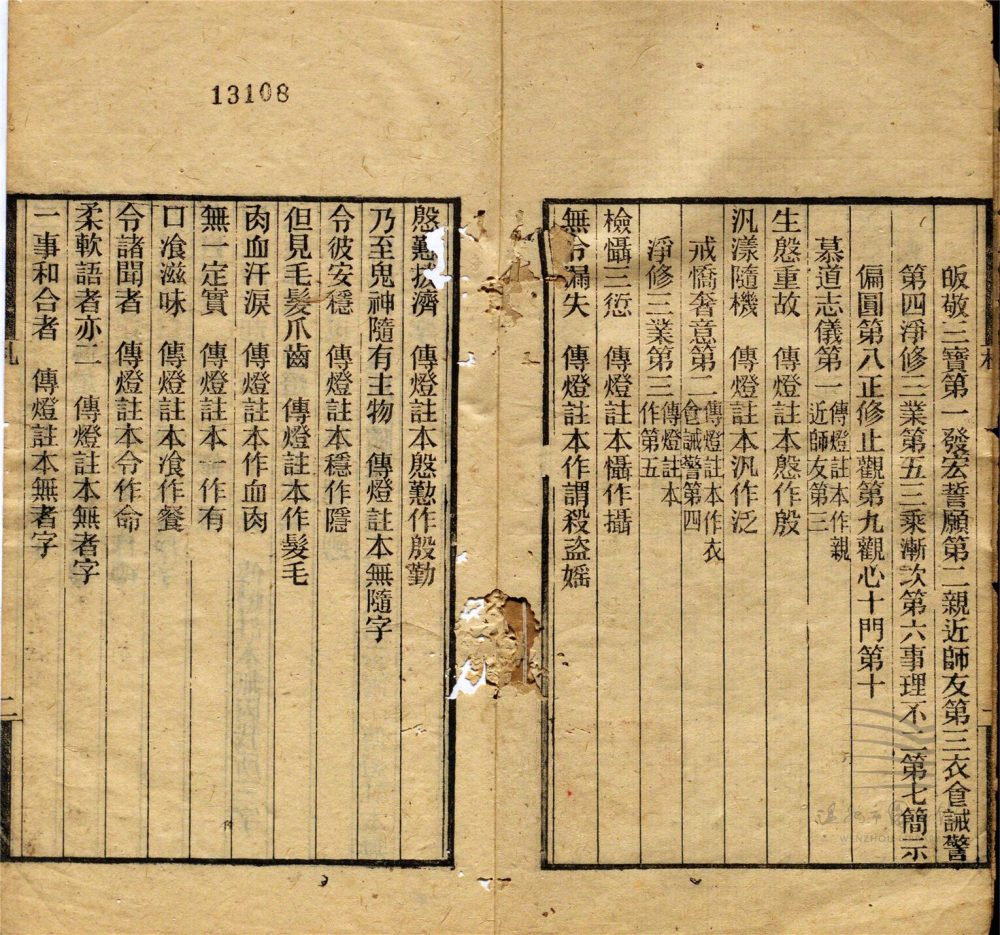 皈敬三寶第一發宏誓願第二親近師友第三衣食誡警
第四淨修三業第五三乘漸次第六事理不二第七簡示
偏圓第八正修止觀第九觀心十門第十
慕道志儀第一 傳燈註本作親近師友第三
生慇重故 傳燈註本慇作殷
汎漾隨機 傳燈註本汎作泛
戒憍奢意第二 傳燈註本作衣食誡警第四
淨修三業第三 傳燈註本作第五
檢懾三愆 傳燈註本懾作攝
無令漏失 傳燈註本作謂殺盜婬
13108
慇懃拔濟 傳燈註本慇懃作殷勤
乃至鬼神隨有主物 傳燈註本無隨字
令彼安穩 傳燈註本穩作隱
但見毛髮爪齒 傳燈註本作髮毛
肉血汗淚 傳燈註本作血肉
無一定實 傳燈註本一作有
口飡滋味 傳燈註本飡作餐
令諸聞者 傳燈註本令作命
柔軟語者亦二 傳燈註本無者字
一事和合者 傳燈註本無者字
二